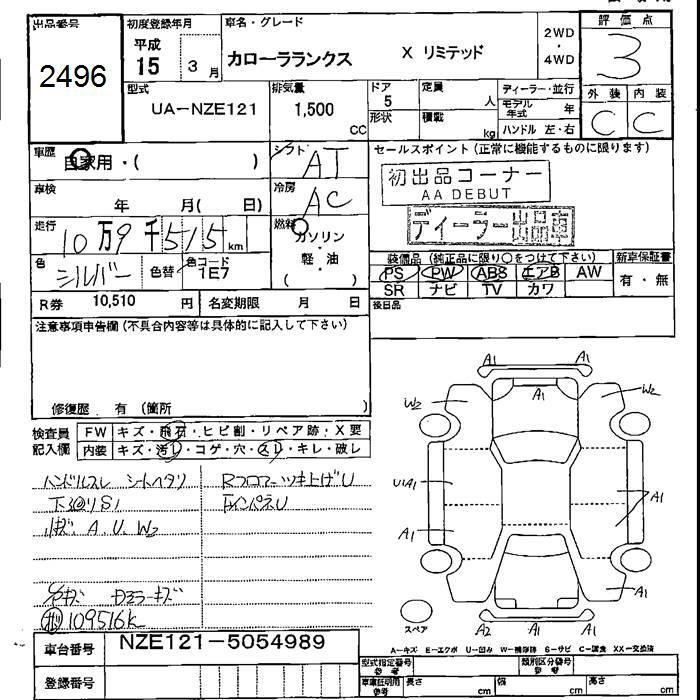 出品番号
2496
初度登録年月
平成
15 3 月
車名・グレード
カローラランクス X リミテッド
2WD
・
4WD
評価点
3
型式
UA-NZE121
排気量
1,500
CC
ドア
5
形状
定員
人
積載
kg
ディーラー・並行
モデル年式 年
ハンドル 左・右
外装 内装
C C
車歴
自家用・( )
シフト
AT
セールスポイント(正常に機能するものに限ります)
初出品コーナー
AA DEBUT
ディーラー出品車
車検
年 月( 日)
冷房
AC
走行
10万9千515 km
燃料
ガソリン
・
軽・油
( )
色
シルバー
色替
色コード
1E7
装備品(純正品に限り○をつけて下さい)
新車保証書
PS PW ABS エアB AW
SR ナビ TV カワ
有・無
R券 10,510 円
名変期限 月 日
後日品
注意事項申告欄(不具合内容等は具体的に記入して下さい)
修復歴 有(箇所 )
検査員
記入欄
FW キズ・飛石・ヒビ割・リペア跡・X要
内装 キズ・汚レ・コゲ・穴・スレ・キレ・破レ
ハンドルスレ シートヘタリ
下廻りS1
小キズ、A、U、W2
Rフロアーツキ上げU
109516k
A1 A1
W2 A1 W2
UA1 A1
A1
A1
A2 A1 A1
スペア
A-キズ E-エクボ U-凹み W-補修跡 S-サビ C-腐食 XX-交換済
車台番号 NZE121-5054989
登録番号
型式指定番号
参考
類別区分番号
参考
車庫証明用
参考
長さ cm 幅 cm 高さ cm